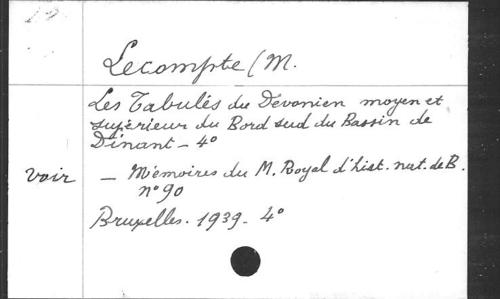 Lecompte (M.
Les Tabulés du Dévonien moyen et
supérieur du Bord sud du Bassin de
Dinant - 4°
voir - Mémoires du M. Royal d'hist. nat. de B.
n° 90
Bruxelles. 1939. 4°